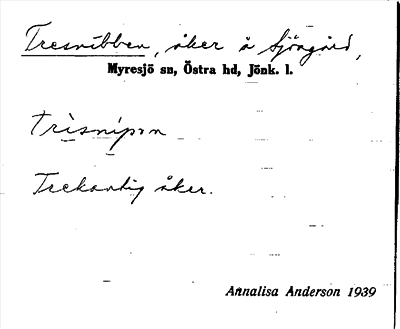 Tresnibben, åker å Sjögård,
Myresjö sn, Östra hd, Jönk. l.
trisnipən
Trekantig åker.
Annalisa Anderson 1939